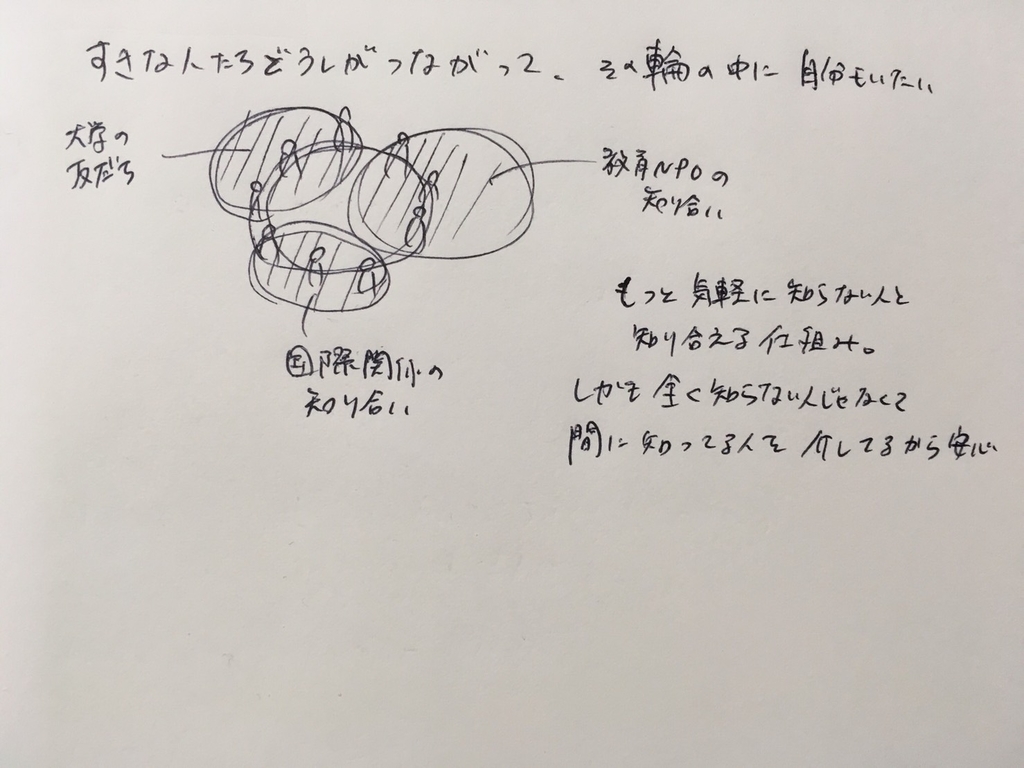 すきな人たちどうしがつながって、その輪の中に自分もいたい
大学の
友だち
教育NPOの
知り合い
国際関係の
知り合い
もっと気軽に知らない人と
知り合える仕組み。
しかも全く知らない人じゃなくて
間に知ってる人を介してるから安心